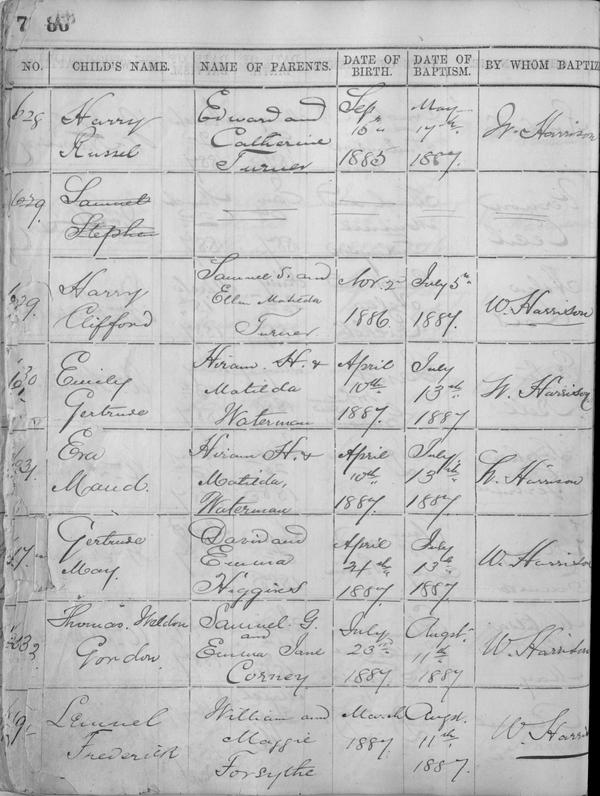 7 86
NO. CHILD'S NAME. NAME OF PARENTS. DATE OF BIRTH. DATE OF BAPTISM. BY WHOM BAPTIZ
628 Harry Russel Edward and Catherine Turner Sep 10th 1885 May 17th 1887. W. Harrison
629 Samuel Stephen
629 Harry Clifford Samuel S. and Ellen Matilda Turner Nov. 2nd 1886. July 5th 1887. W. Harrison
630 Emily Gertrude Hiram H. & Matilda Waterman April 10th 1887. July 13th 1887 W. Harrison
631 Eva Maud. Hiram H. & Matilda, Waterman April 10th 1887. July, 13th 1887 W. Harrison
Gertrude May. David and Emma Higgins April 21th 1887. July 13th 1887 W. Harrison
Thomas. Weldon Gordon. Samuel G. and Emma Jane Corney July 23rd 1887. Augst. 11th 1887. W. Harrison
Lemuel Frederick William and Maggie Forsythe March 1887. Augst. 11th 1887. W. Harri